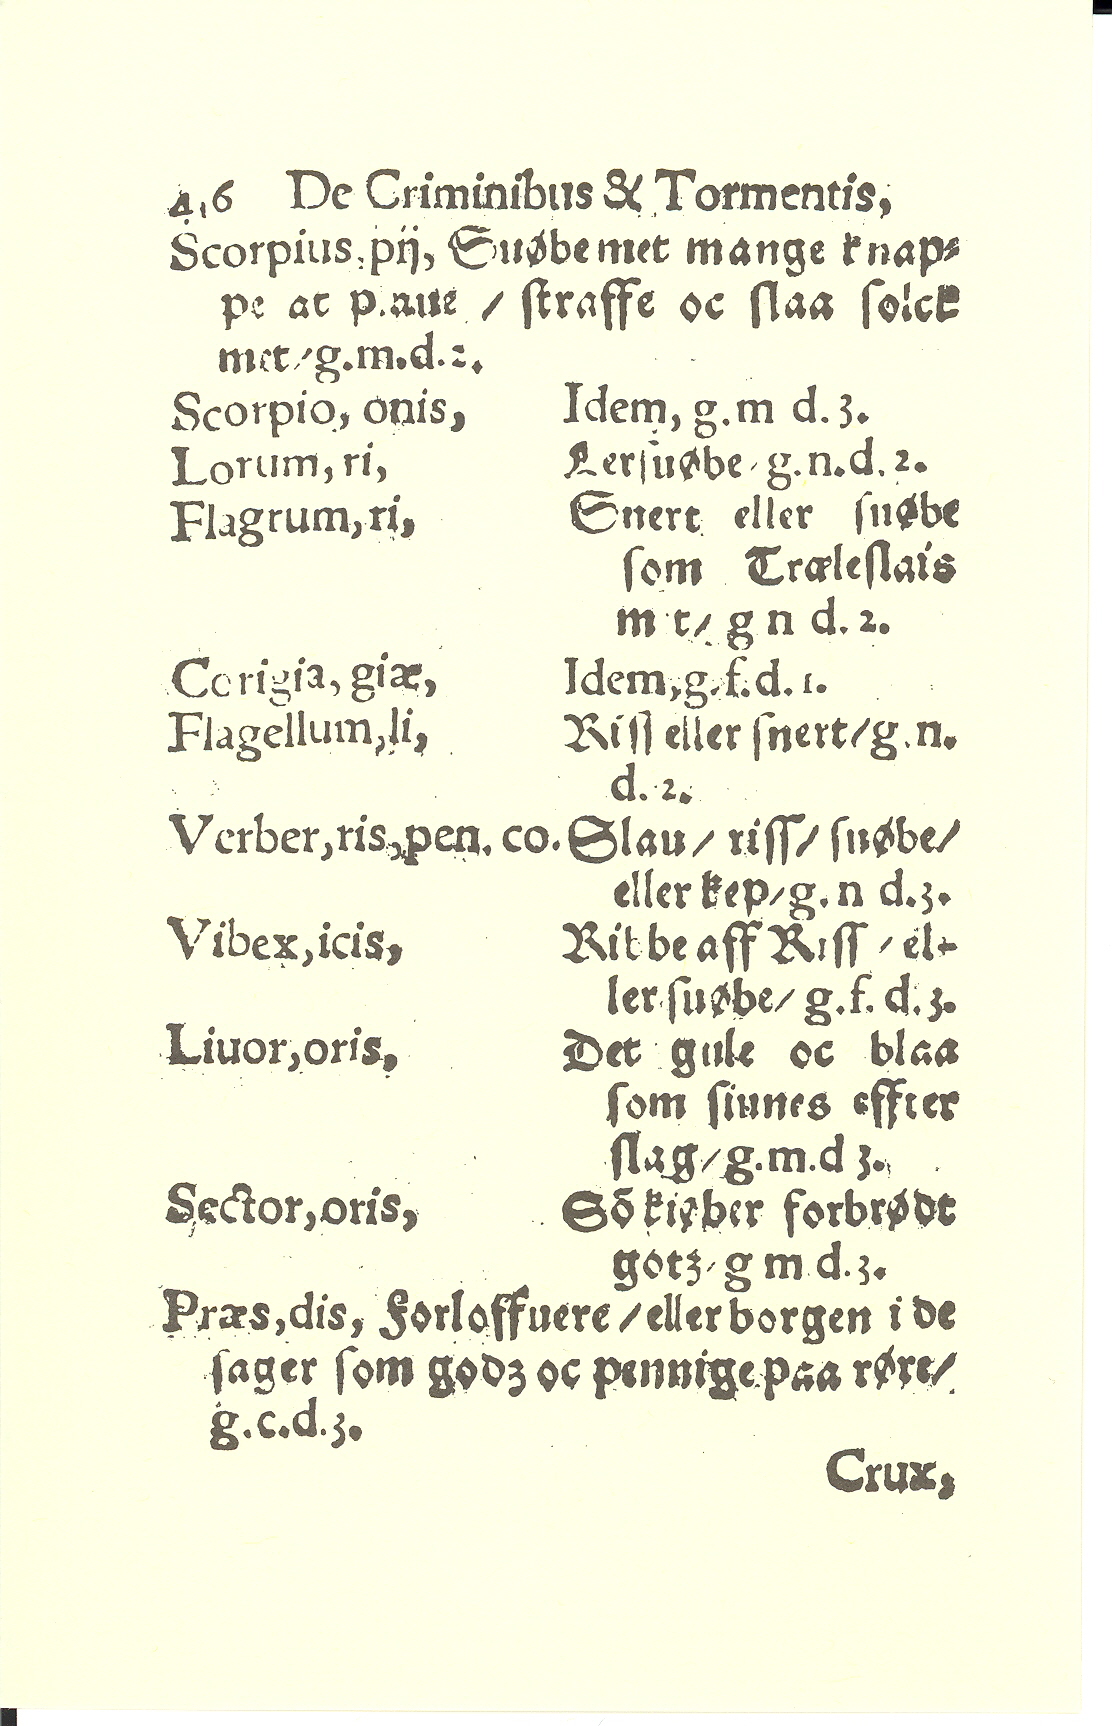 4,6 De Criminibus & Tormentis,
Scorpius, pij, Suøbe met mange knap⸗
pe at plaue / straffe oc slaa folck
met / g.m.d.2.
Scorpio, onis, Idem, g.m d.3.
Lorum, ri, Lersuøbe / g.n.d.2.
Flagrum, ri, Snert eller suøbe
som Træleslais
met / g n d.2.
Corigia, giæ, Idem, g.f.d.1.
Flagellum, li, Riss eller snert / g.n.
d.2.
Verber, ris, pen. co. Slau / riss / suøbe /
eller kep / g.n d.3.
Vibex, icis, Ribbe aff Riss / el⸗
ler suøbe / g.f.d.3.
Liuor, oris, Det gule oc blaa
som siunes effter
slag / g.m.d 3.
Sector, oris, Sō kiøber forbrødt
gotz / g m d.3.
Præs, dis, Forloffuere / eller borgen i de
sager som godz oc pennige paa røre /
g.c.d.3.
Crux,